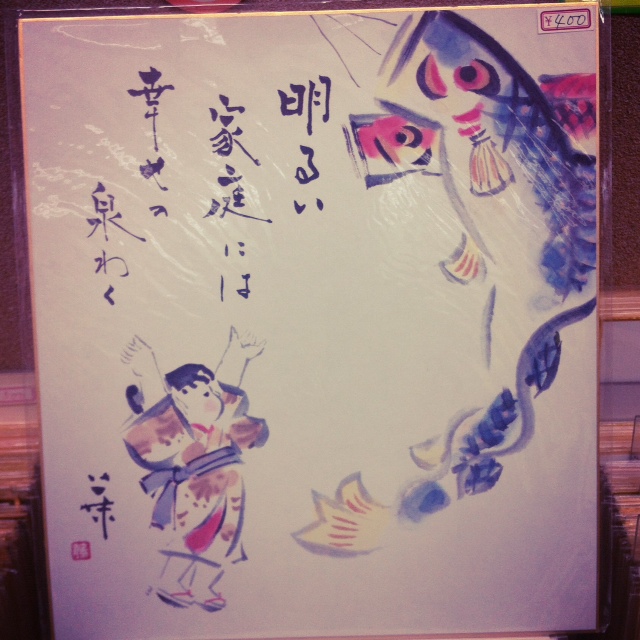 明るい
家庭には
幸せの
泉わく
¥400